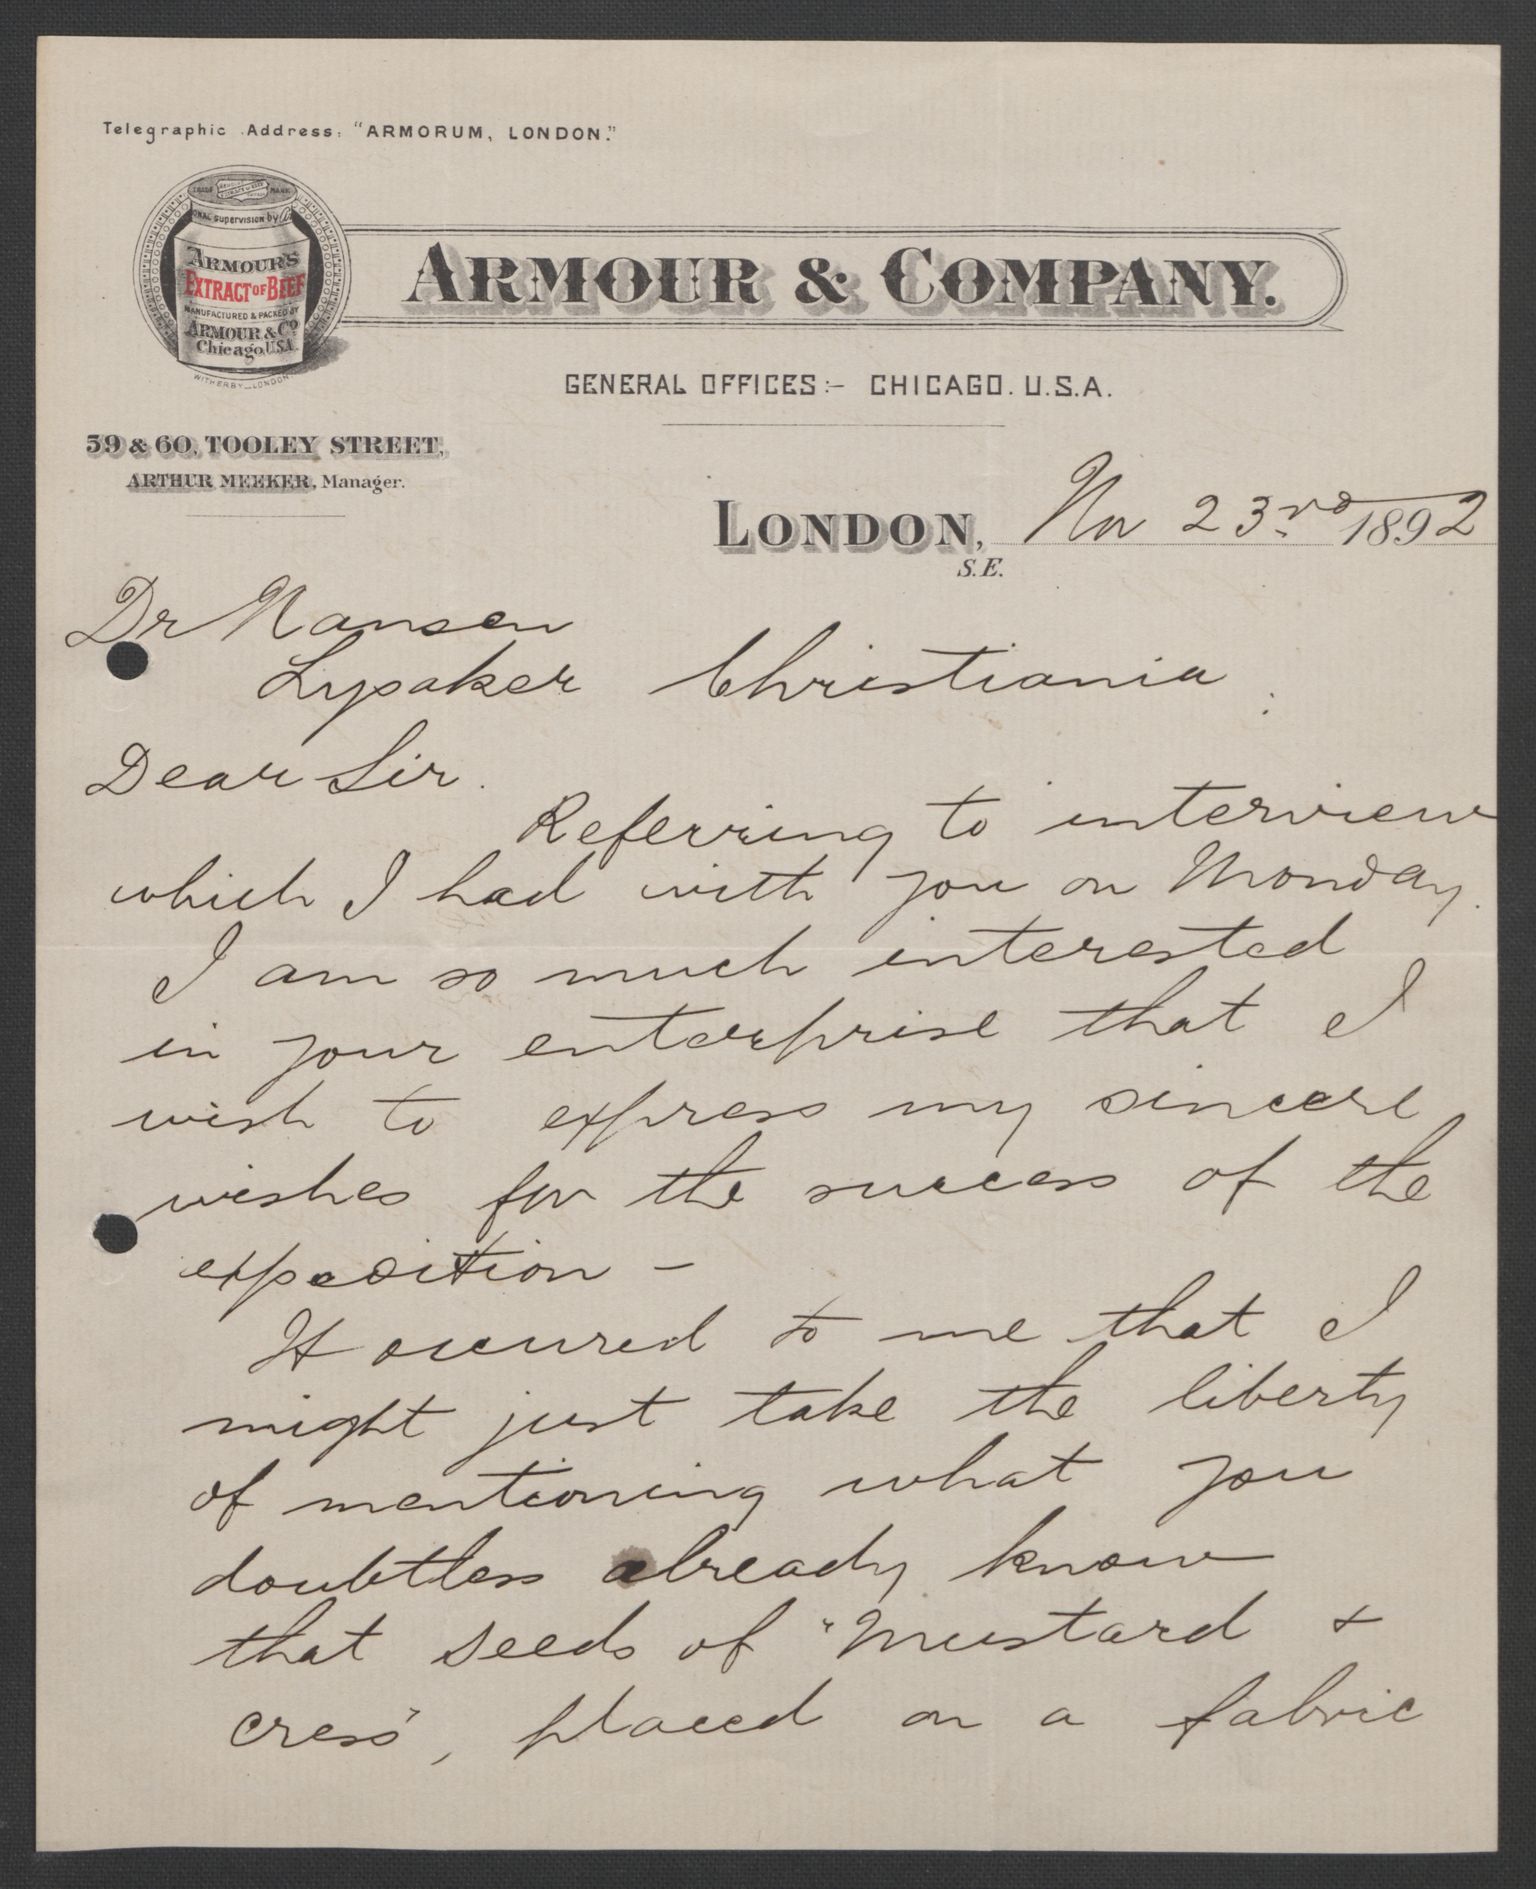 Telegraphic Address: "ARMORUM, LONDON."
TRADE MARK
ONAL supervision by
ARMOUR'S
EXTRACT OF BEEF
MANUFACTURED & PACKED BY
ARMOUR & Co
Chicago, U.S.A.
WITHERBY_LONDON
ARMOUR & COMPANY.
GENERAL OFFICES:- CHICAGO. U.S.A.
59 & 60, TOOLEY STREET,
ARTHUR MEEKER, Manager.
LONDON, Nov 23rd 1892
S.E.
Dr Nansen
Lysaker Christiania
Dear Sir.
Referring to interview
which I had with you on Monday.
I am so much interested
in your enterprise that I
wish to express my sincere
wishes for the success of the
expedition -
It occured to me that I
might just take the liberty
of mentioning what you
doubtless already know
that seeds of "Mustard &
cress", placed on a fabric